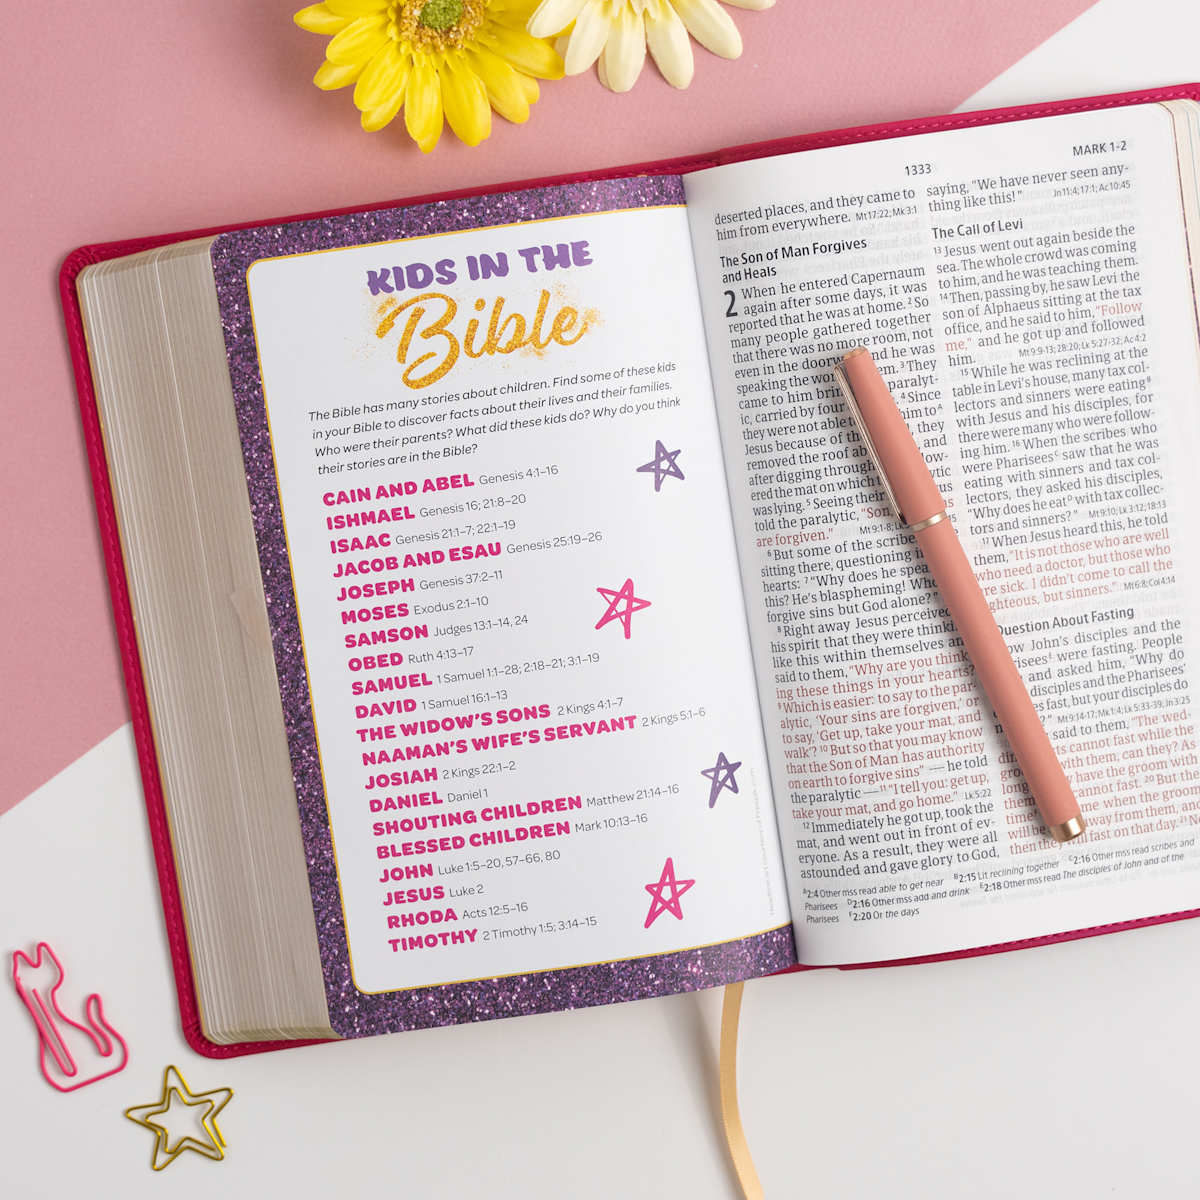 KIDS IN THE
Bible
The Bible has many stories about children. Find some of these kids
in your Bible to discover facts about their lives and their families.
Who were their parents? What did these kids do? Why do you think
their stories are in the Bible?
CAIN AND ABEL Genesis 4:1–16
ISHMAEL Genesis 16; 21:8–20
ISAAC Genesis 21:1–7; 22:1–19
JACOB AND ESAU Genesis 25:19–26
JOSEPH Genesis 37:2–11
MOSES Exodus 2:1–10
SAMSON Judges 13:1–14, 24
OBED Ruth 4:13–17
SAMUEL 1 Samuel 1:1–28; 2:18–21; 3:1–19
DAVID 1 Samuel 16:1–13
THE WIDOW'S SONS 2 Kings 4:1–7
NAAMAN'S WIFE'S SERVANT 2 Kings 5:1–6
JOSIAH 2 Kings 22:1–2
DANIEL Daniel 1
SHOUTING CHILDREN Matthew 21:14–16
BLESSED CHILDREN Mark 10:13–16
JOHN Luke 1:5–20, 57–66, 80
JESUS Luke 2
RHODA Acts 12:5–16
TIMOTHY 2 Timothy 1:5; 3:14–15
1333
MARK 1-2
deserted places, and they came to
him from everywhere. Mt 17:22; Mk 3:1
The Son of Man Forgives
and Heals
2 When he entered Capernaum
again after some days, it was
reported that he was at home. 2 So
many people gathered together
that there was no more room, not
even in the and he was
speaking the 3 They
came to him paralyt-
ic, carried by four 4 Since
they were not able him to A
Jesus because of they
removed the roof and
after digging through
ered the mat on which
was lying. 5 Seeing their
told the paralytic, "Son,
are forgiven."
6 But some of the
sitting there, questioning
hearts: 7 "Why does he
this? He's blaspheming! Who
forgive sins but God alone?"
8 Right away Jesus perceived
his spirit that they were
like this within themselves
said to them, "Why are you
ing these things in your hearts?
9 Which is easier: to say to the par-
alytic, 'Your sins are forgiven,' or
to say, 'Get up, take your mat, and
walk'? 10 But so that you may know
that the Son of Man has authority
on earth to forgive sins" — he told
the paralytic — 11 "I tell you: get up,
take your mat, and go home." Lk 5:22
12 Immediately he got up, took the
mat, and went out in front of ev-
eryone. As a result, they were all
astounded and gave glory to God,
saying, "We have never seen any-
thing like this!" Jn 11:4; 17:1; Ac 10:45
The Call of Levi
13 Jesus went out again beside the
sea. The whole crowd was coming
to him, and he was teaching them.
14 Then, passing by, he saw Levi the
son of Alphaeus sitting at the tax
office, and he said to him, "Follow
me," and he got up and followed
him. Mt 9:9-13; 28:20; Lk 5:27-32; Ac 4:2
15 While he was reclining at the
table in Levi's house, many tax col-
lectors and sinners were eating B
with Jesus and his disciples, for
there were many who were follow-
ing him. 16 When the scribes who
were Pharisees C saw that he was
eating with sinners and tax col-
lectors, they asked his disciples,
"Why does he eat D with tax collec-
tors and sinners?" Mt 9:10; Lk 3:12; 18:13
17 When Jesus heard this, he told
them, "It is not those who are well
who need a doctor, but those who
are sick. I didn't come to call the
righteous, but sinners." Mt 6:8; Col 4:14
Question About Fasting
John's disciples and the
were fasting. People
and asked him, "Why do
disciples and the Pharisees'
fast, but your disciples do
Mt 9:14-17; Mk 1:4; Lk 5:33-39; Jn 3:25
said to them, "The wed-
cannot fast while the
with them, can they? As
have the groom with
cannot fast. 20 But the
time when the groom
will be away from them, and
then they will fast on that day. 21 No
A 2:4 Other mss read able to get near B 2:15 Lit reclining together C 2:16 Other mss read scribes and
Pharisees D 2:16 Other mss add and drink E 2:18 Other mss read The disciples of John and of the
Pharisees F 2:20 Or the days